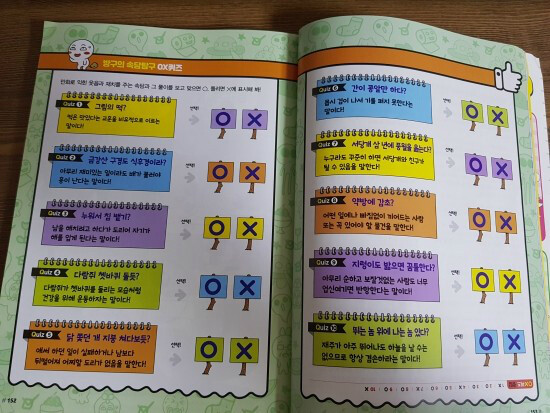 방구의 속담탐구 OX퀴즈
만화로 익힌 웃음과 재치를 주는 속담과 그 풀이를 보고 맞으면 ○, 틀리면 ×에 표시해 봐!
Quiz 1 그림의 떡?
떡은 맛있다는 교훈을 비유적으로 이르는
말이다!
선택!
O X
Quiz 2 금강산 구경도 식후경이라?
아무리 재미있는 일이라도 배가 불러야
흥이 난다는 말이다!
선택!
O X
Quiz 3 누워서 침 뱉기?
남을 해치려고 하다가 도리어 자기가
해를 입게 된다는 말이다!
선택!
O X
Quiz 4 다람쥐 쳇바퀴 돌듯?
다람쥐가 쳇바퀴를 돌리는 모습처럼
건강을 위해 운동하자는 말이다!
선택!
O X
Quiz 5 닭 쫓던 개 지붕 쳐다보듯?
애써 하던 일이 실패하거나 남보다
뒤떨어져 어찌할 도리가 없음을 말한다!
선택!
O X
152
Quiz 6 간이 콩알만 하다?
몹시 겁이 나서 기를 펴지 못한다는
말이다!
선택!
O X
Quiz 7 서당개 삼 년에 풍월을 읊는다?
누구라도 꾸준히 하면 서당개와 친구가
될 수 있음을 말한다!
선택!
O X
Quiz 8 약방에 감초?
어떤 일에나 빠짐없이 끼어드는 사람
또는 꼭 있어야 할 물건을 말한다!
선택!
O X
Quiz 9 지렁이도 밟으면 꿈틀한다?
아무리 순하고 보잘것없는 사람도 너무
업신여기면 반항한다는 말이다!
선택!
O X
Quiz 10 뛰는 놈 위에 나는 놈 있다?
재주가 아주 뛰어나도 하늘을 날 수는
없으므로 항상 겸손하라는 말이다!
선택!
O X